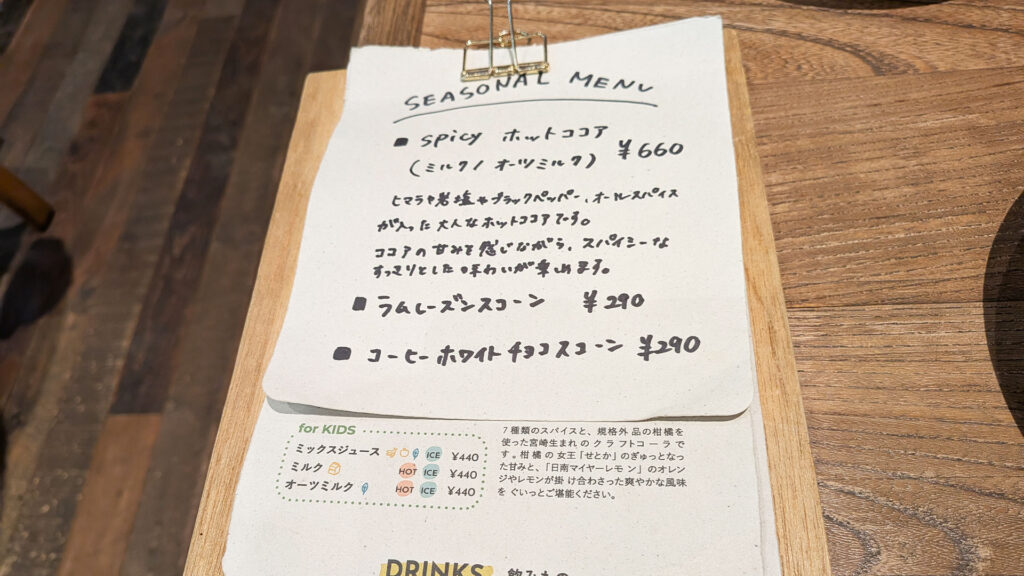 SEASONAL MENU
■ spicy ホットココア
(ミルク / オーツミルク) ¥660
ヒマラヤ岩塩やブラックペッパー、オールスパイス
が入った大人なホットココアです。
ココアの甘みを感じながら、スパイシーな
すっきりとした味わいが楽しめます。
■ ラムレーズンスコーン ¥290
■ コーヒーホワイトチョコスコーン ¥290
for KIDS
ミックスジュース ICE ¥440
ミルク HOT ICE ¥440
オーツミルク HOT ICE ¥440
7種類のスパイスと、規格外品の柑橘を
使った宮崎生まれのクラフトコーラで
す。柑橘の女王「せとか」のぎゅっとなっ
た甘みと、「日南マイヤーレモン」のオレン
ジやレモンが掛け合わさった爽やかな風味
をぐいっとご堪能ください。
DRINKS 飲みもの